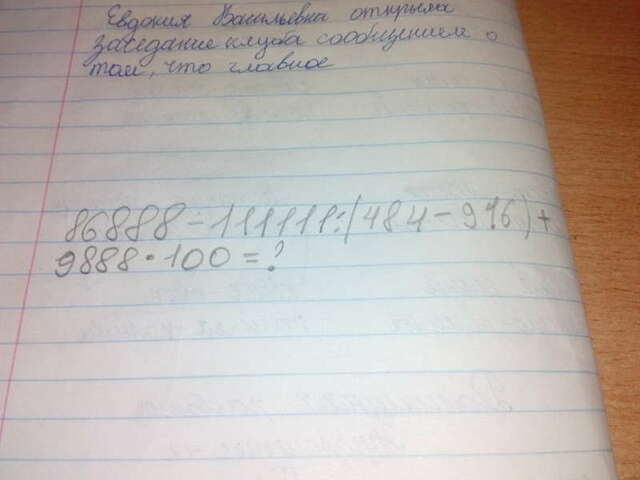 Евдокия Васильевна открыла
заседание клуба сообщением о
том, что главное
86888-111111:(484-916)+
9888·100=?